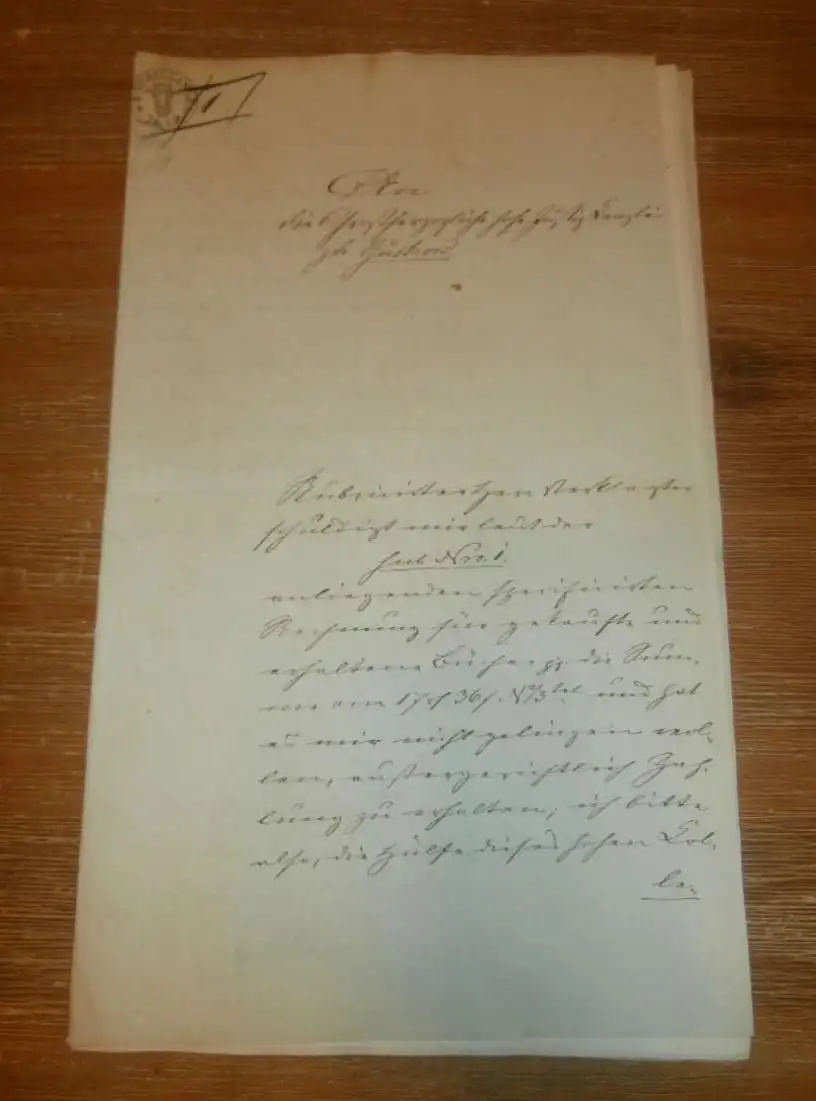 An
die Großherzogliche hohe Justiz Canzlei
zu Güstrow.
Rubricirter Herr Verklagter
schuldigt mir laut der
sub Nro. 1.
anliegenden specificirten
Rechnung für gekaufte und
erhaltene Bücher pp. die Sum-
me von 17 rf 36 s. N 2/3tel und hat
es mir nicht gelingen wol-
len, außergerichtlich Zah-
lung zu erhalten; ich bitte
also, die Hülfe dieses hohen Col-
le-